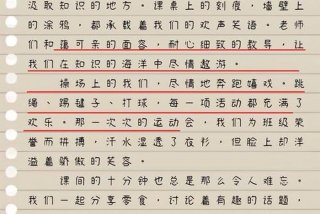 汲取知识的地方。课桌上的刻痕，墙壁上
的涂鸦，都承载着我们的欢声笑语。老师
们和蔼可亲的面容，耐心细致的教导，让
我们在知识的海洋中尽情遨游。
操场上的我们，尽情地奔跑嬉戏。跳
绳、踢毽子、打球，每一项活动都充满了
欢乐。那一次次的运动会，我们为班级荣
誉而拼搏，汗水湿透了衣衫，但脸上却洋
溢着骄傲的笑容。
课间的十分钟也总是那么令人难忘。
我们一起分享零食，讨论着有趣的话题，